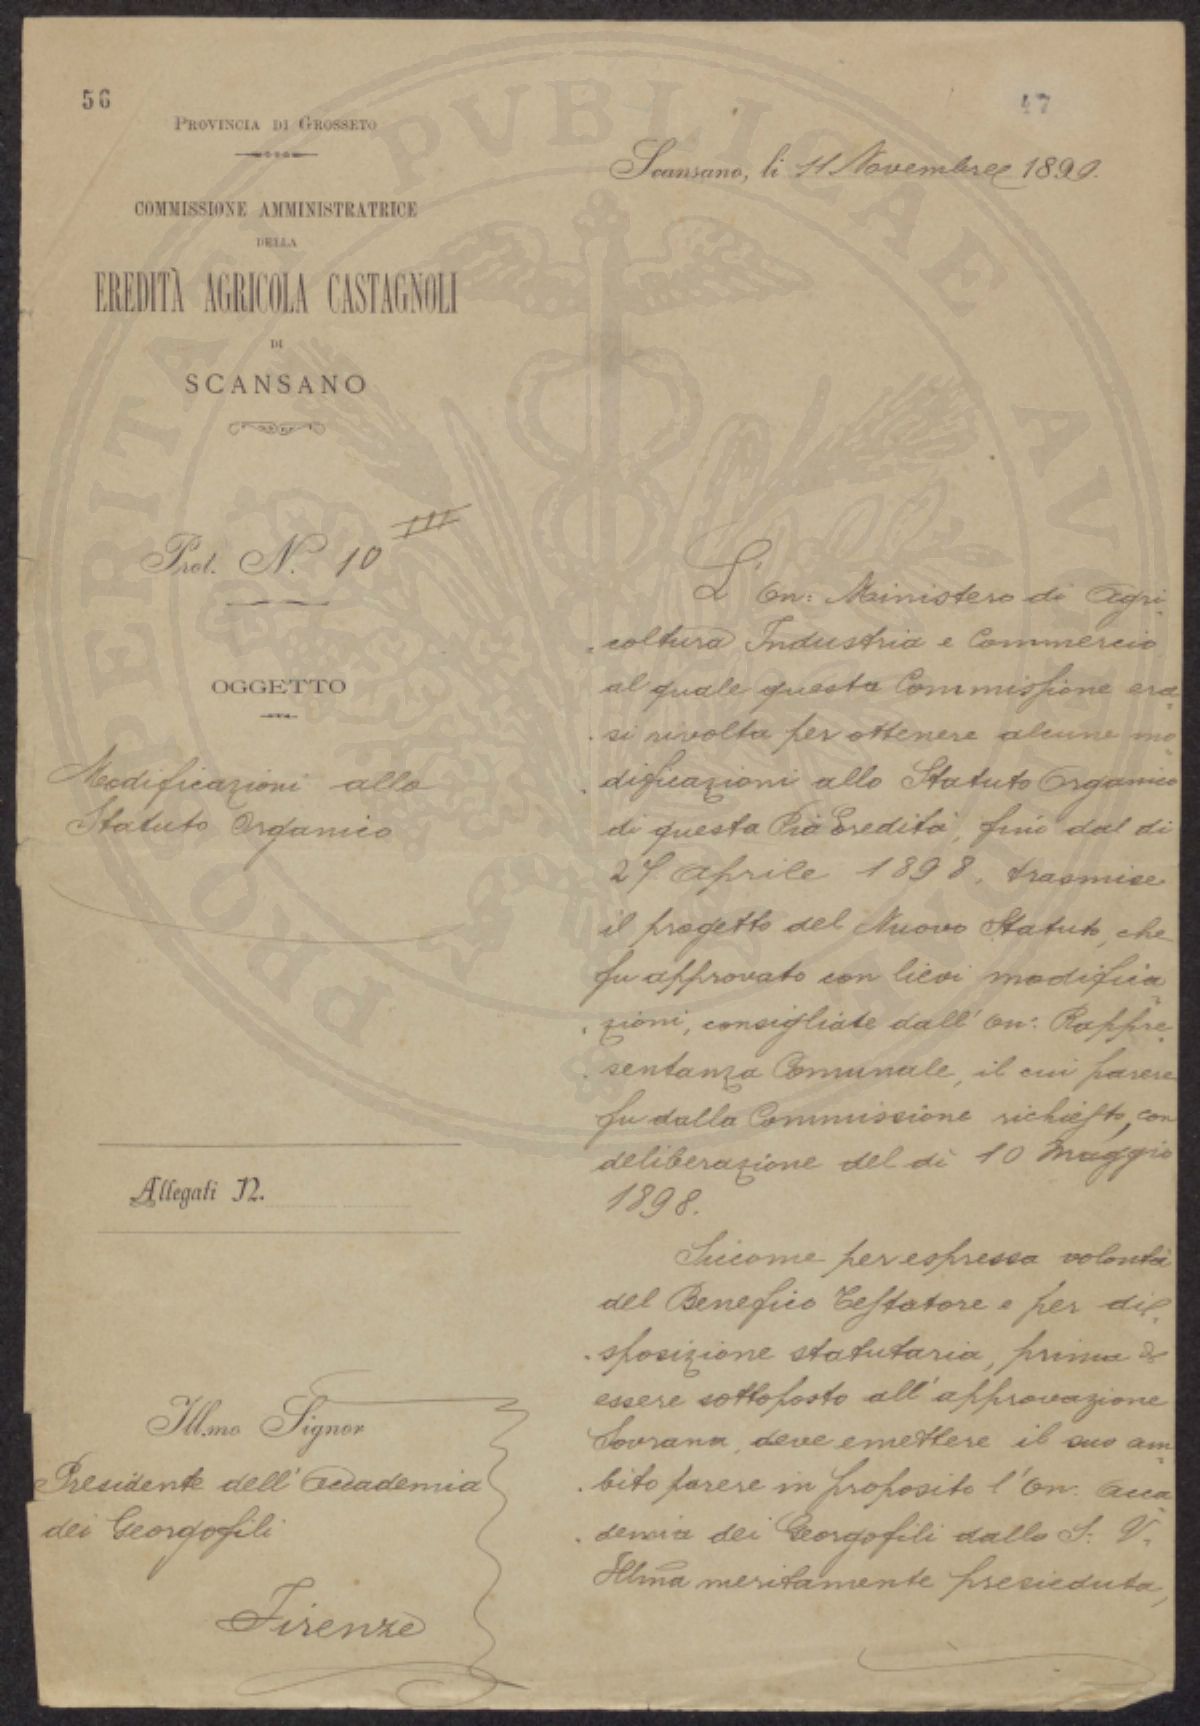 56
47
PROVINCIA DI GROSSETO
COMMISSIONE AMMINISTRATRICE
DELLA
EREDITÀ AGRICOLA CASTAGNOLI
DI
SCANSANO
Scansano, li 11 Novembre 1899.
Prot. N. 10 III
OGGETTO
Modificazioni allo
Statuto Organico
Allegati N.
Ill.mo Signor
Presidente dell'Accademia
dei Georgofili
Firenze
L'On: Ministero di Agri
coltura Industria e Commercio
al quale questa Commissione era
si rivolta per ottenere alcune mo
dificazioni allo Statuto Organico
di questa Pia Eredità, fino dal dì
27 Aprile 1898, trasmise
il progetto del Nuovo Statuto, che
fu approvato con lievi modifica
zioni, consigliate dall'On: Rappre
sentanza Comunale, il cui parere
fu dalla Commissione richiesto, con
deliberazione del dì 10 Maggio
1898.
Siccome per espressa volontà
del Benefico Testatore e per di
sposizione statutaria, prima di
essere sottoposto all'approvazione
Sovrana, deve emettere il suo am
bito parere in proposito l'On. Acca
demia dei Georgofili dalla S. V.
Illma meritamente presieduta,
PROSPERITATI PVBLICAE AVGENDAE